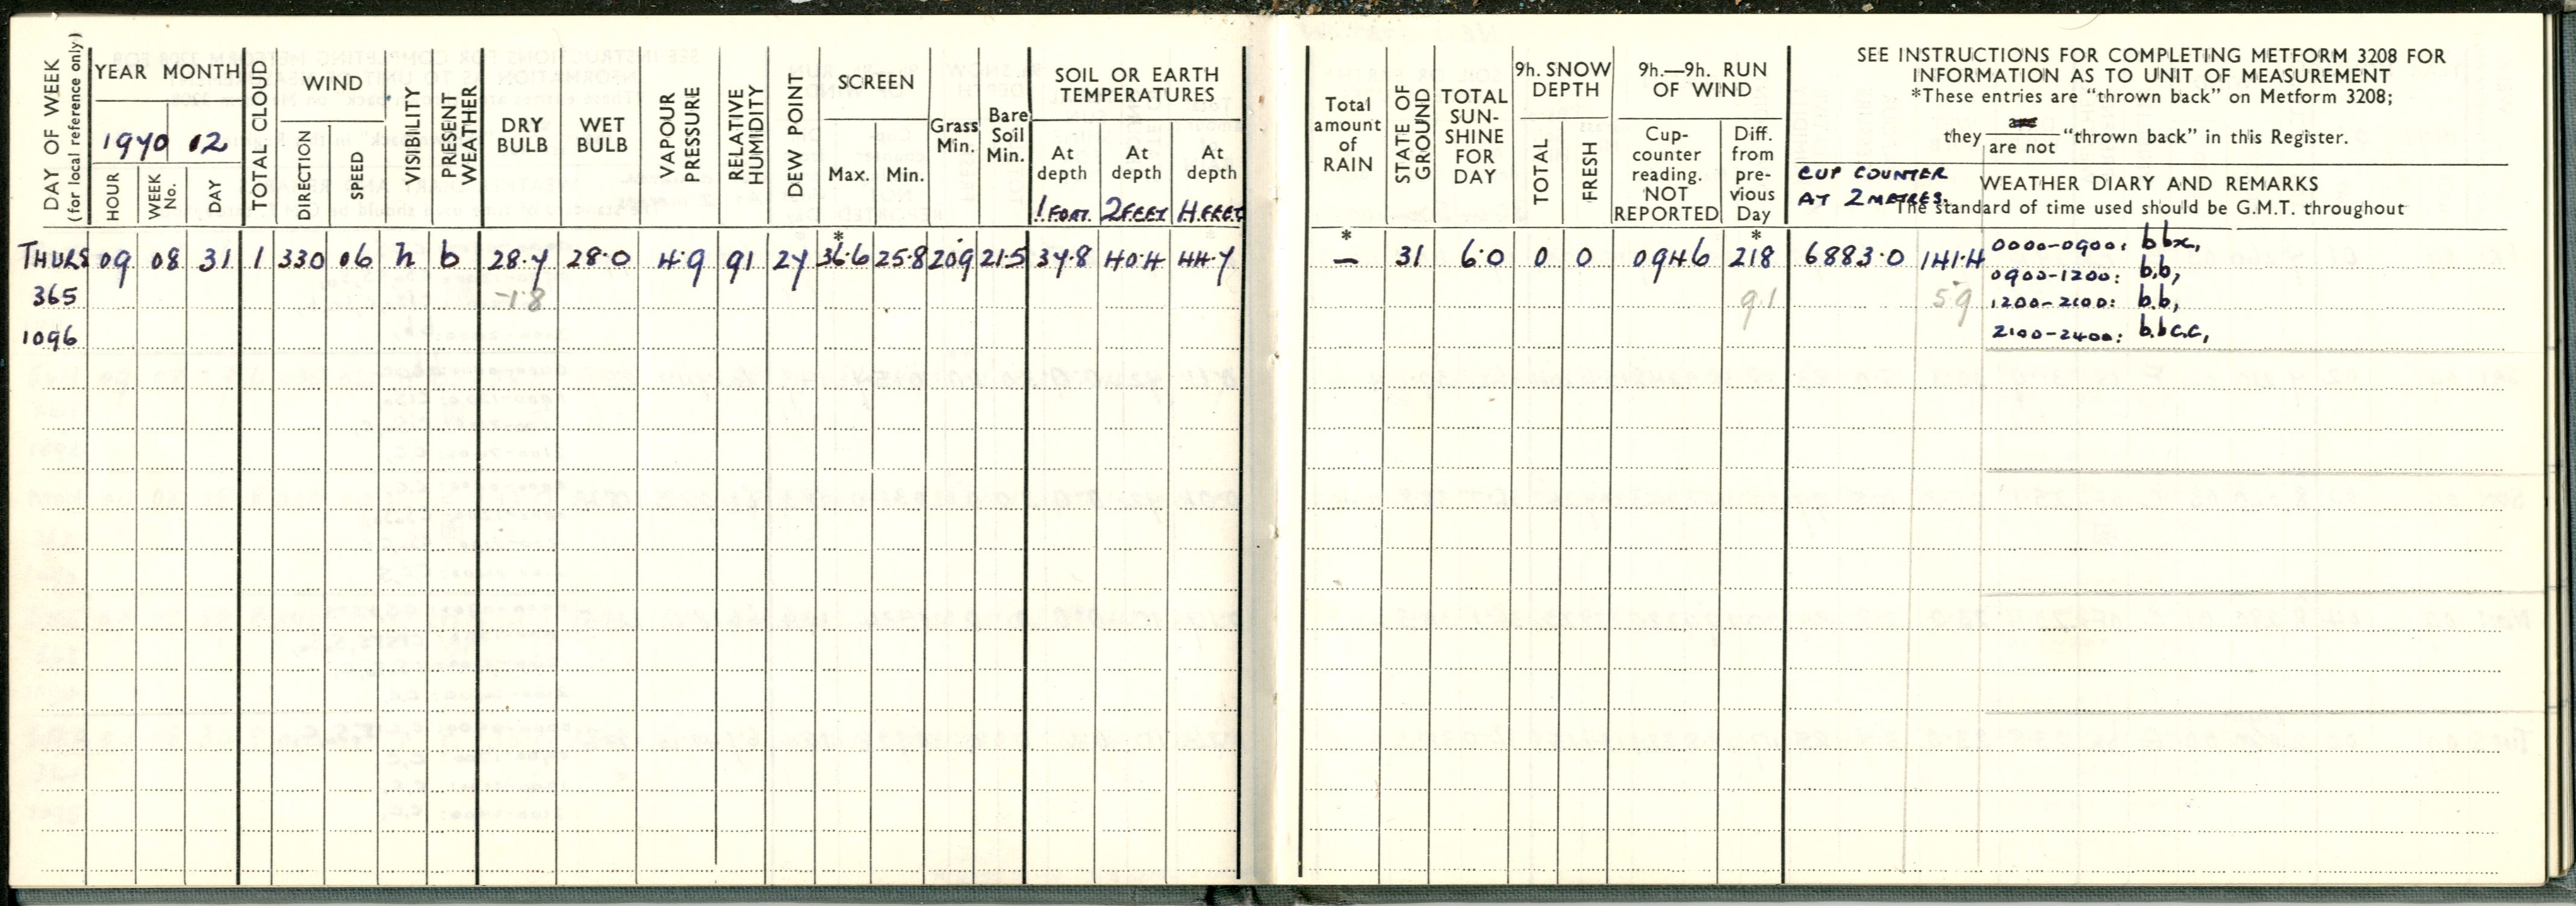 DAY OF WEEK
(for local reference only)
YEAR MONTH
1970 12
HOUR
WEEK No.
DAY
TOTAL CLOUD
WIND
DIRECTION
SPEED
VISIBILITY
PRESENT WEATHER
DRY BULB
WET BULB
VAPOUR PRESSURE
RELATIVE HUMIDITY
DEW POINT
SCREEN
Max. Min.
Grass Min.
Bare Soil Min.
SOIL OR EARTH
TEMPERATURES
At depth At depth At depth
1 FOOT 2 FEET 4 FEET
THURS 09 08 31 1 330 06 h b 28.7 28.0 4.9 91 27 *36.6 25.8 20.9 21.5 37.8 40.4 44.7
365 -1.8
1096
Total amount of RAIN
STATE OF GROUND
TOTAL SUN-SHINE FOR DAY
9h. SNOW DEPTH
TOTAL
FRESH
9h.—9h. RUN OF WIND
Cup-counter reading. NOT REPORTED
Diff. from pre-vious Day
SEE INSTRUCTIONS FOR COMPLETING METFORM 3208 FOR
INFORMATION AS TO UNIT OF MEASUREMENT
*These entries are "thrown back" on Metform 3208;
they are / are not "thrown back" in this Register.
CUP COUNTER
AT 2 METRES.
WEATHER DIARY AND REMARKS
The standard of time used should be G.M.T. throughout
* – 31 6.0 0 0 0946 *218 6883.0 141.4
9.1 5.9
0000-0900: bbx,
0900-1200: b.b,
1200-2100: b.b,
2100-2400: b.bc.c,